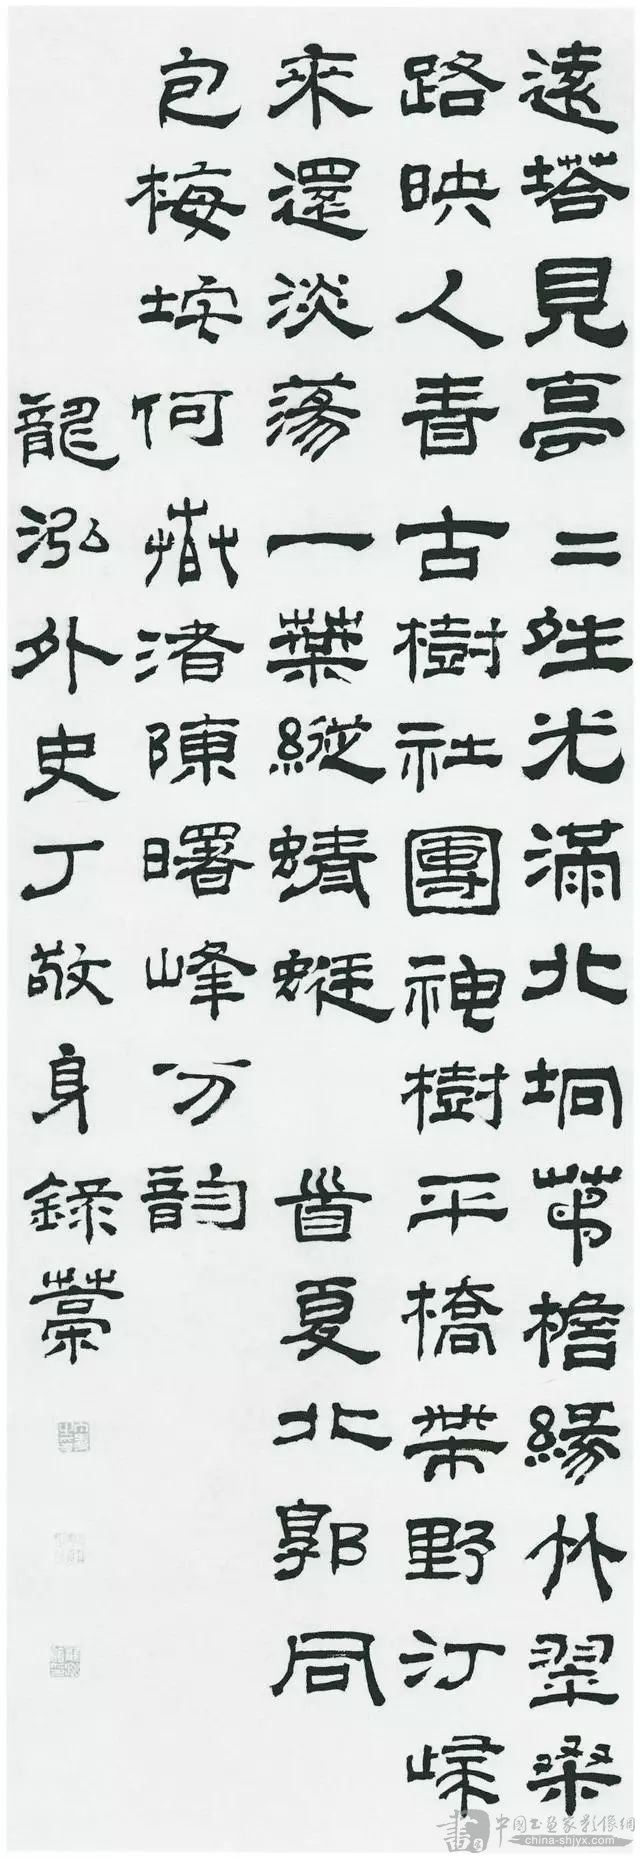 遠塔見亭二夝光滿北坰茆檐緣竹翠桑
路映人青古樹社團神樹平橋帶野汀歸
來還淡蕩一葉縱蜻蜓 首夏北郭同
包梅垞何春渚陳曙峰分韵
龍泓外史丁敬身錄藁
中国书画家影像網
china-shjyx.com